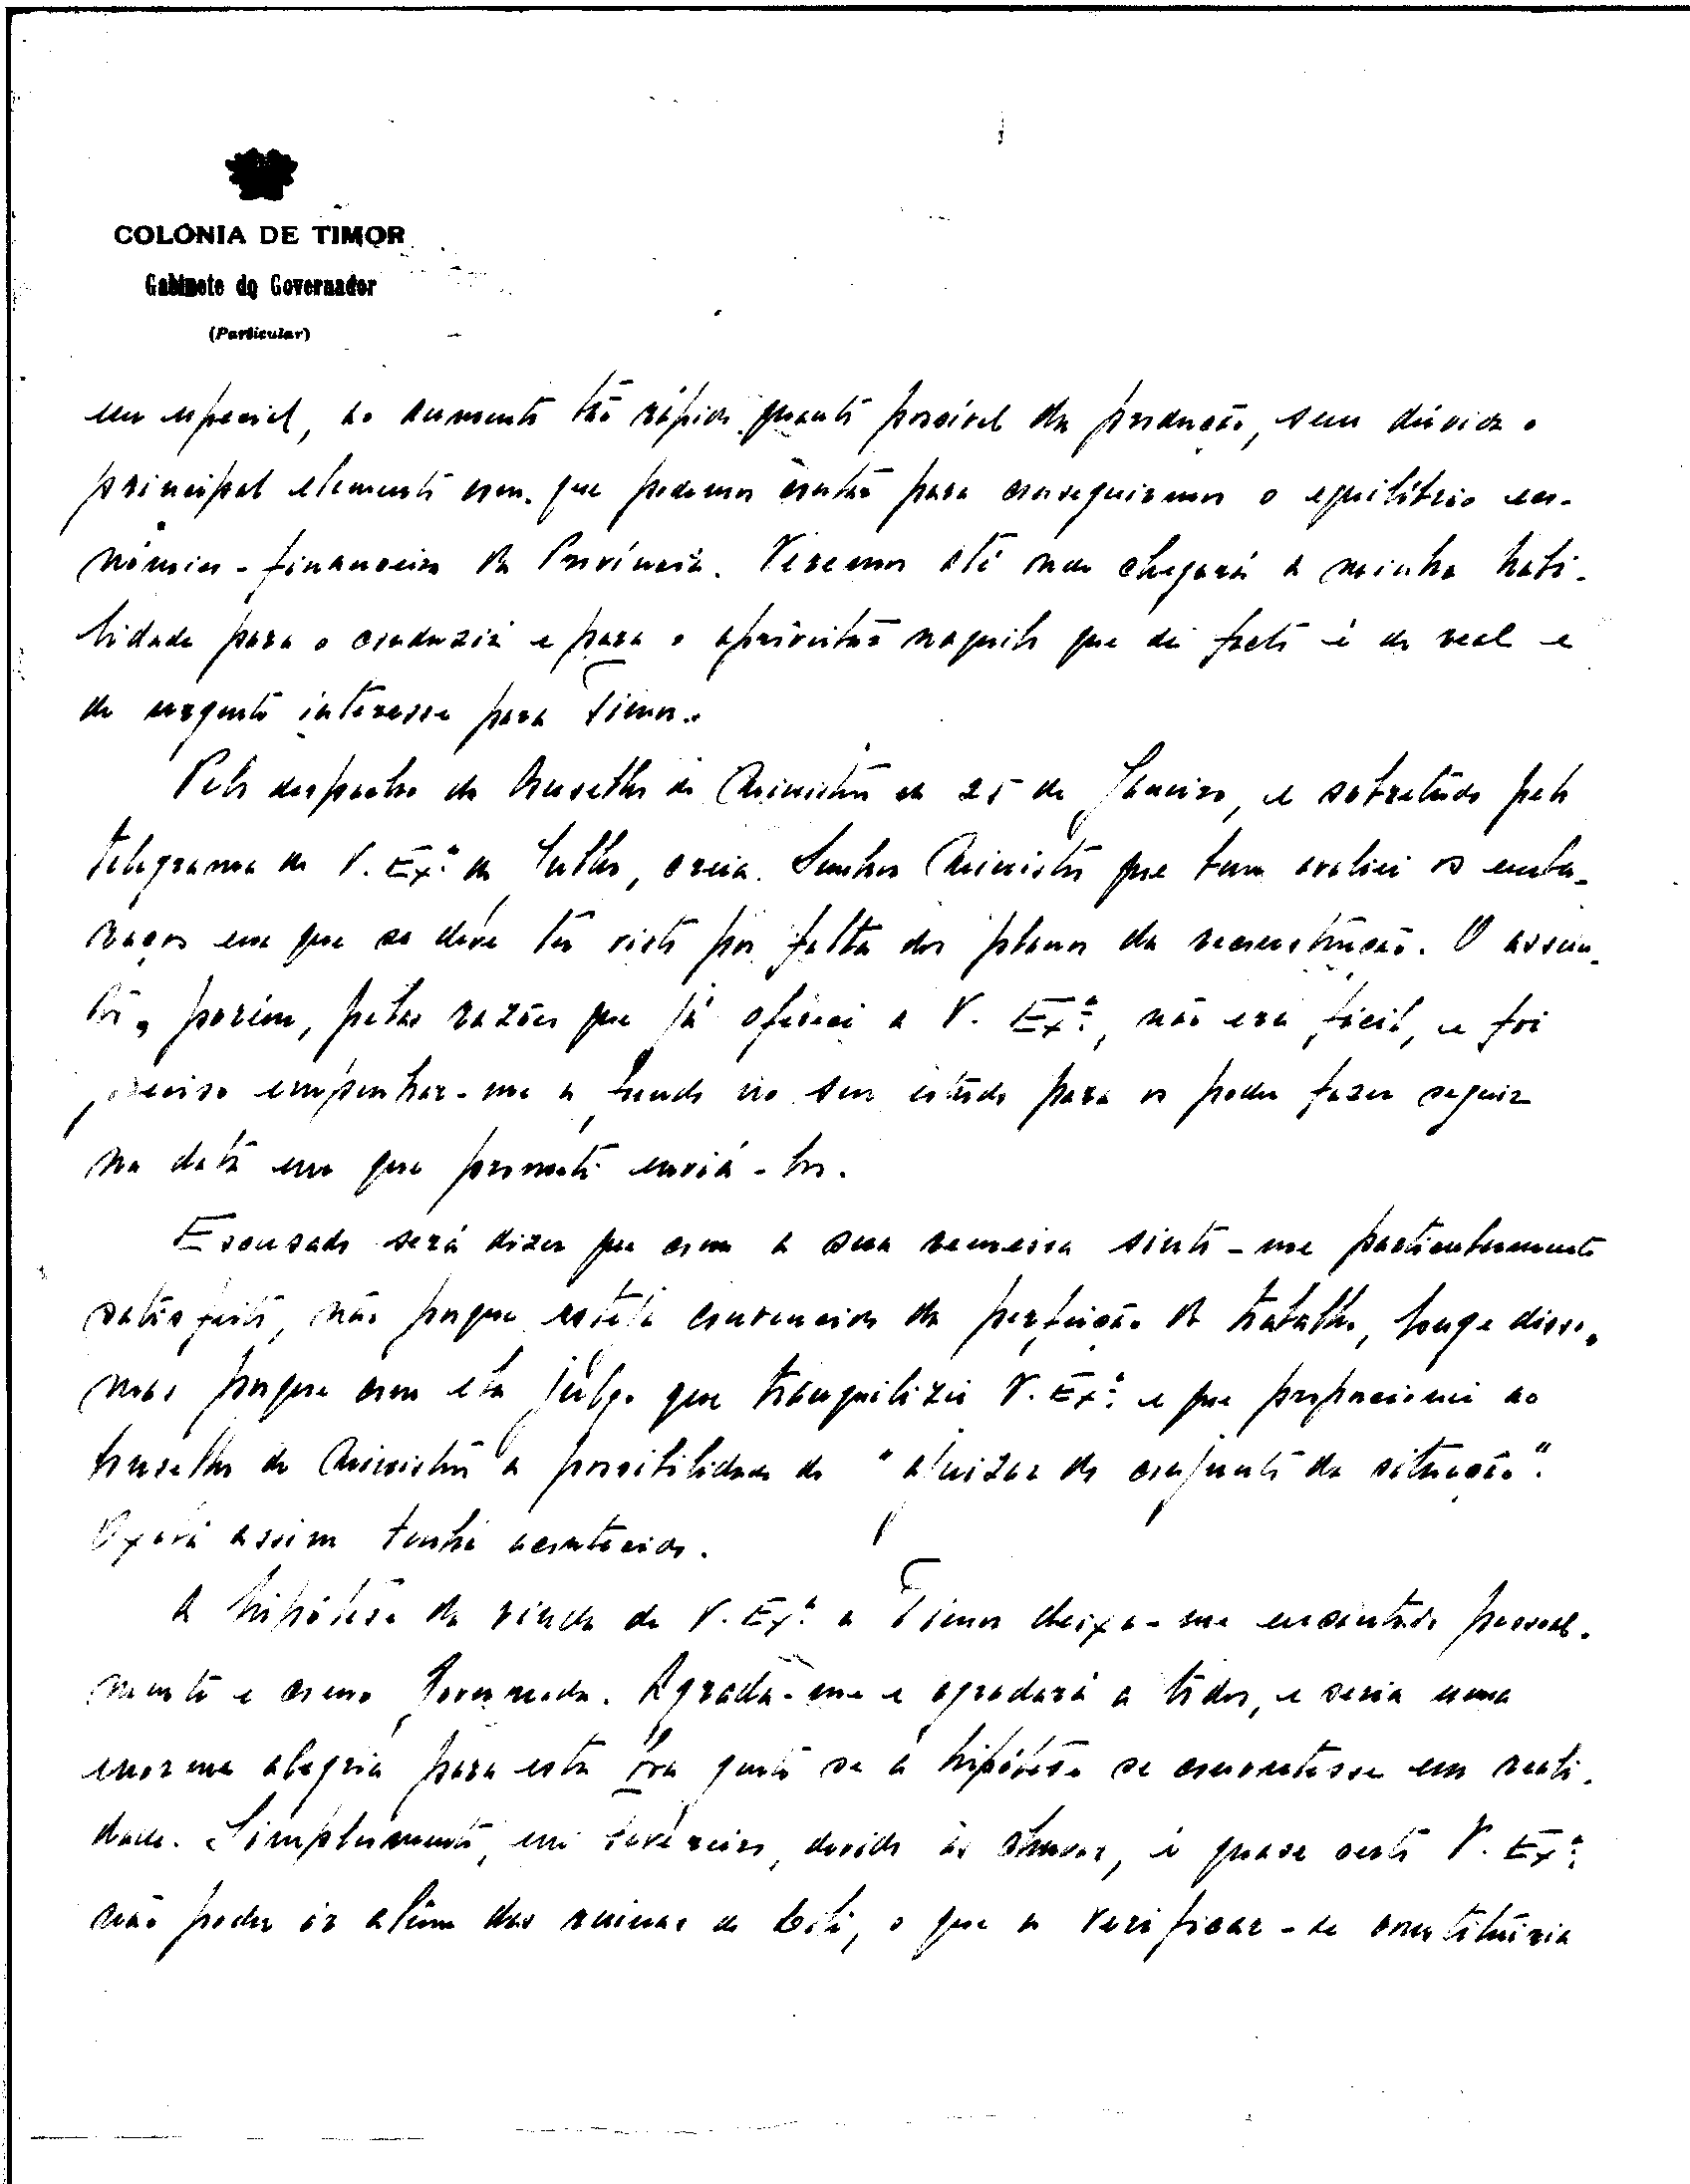 COLÓNIA DE TIMOR
Gabinete do Governador
(Particular)
em especial, ao aumento tão rápido quanto possível da produção, sem dúvida o
principal elemento com que podemos contar para conseguirmos o equilíbrio eco-
nómico-financeiro da Província. Veremos até onde chegará a minha habi-
lidade para o conduzir e para o aproveitar naquilo que de facto é de real e
de urgente interesse para Timor.
Pelo despacho do Conselho de Ministros de 25 de Janeiro, e sobretudo pelo
telegrama de V. Exª de Julho, creia Senhor Ministro que bem avaliei os emba-
raços em que se deve ter visto por falta dos planos da reconstrução. O assun-
to, porém, pelas razões que já ofereci a V. Exª, não era fácil, e foi
preciso empenhar-me a fundo no seu estudo para os poder fazer seguir
na data em que prometi enviá-los.
Escusado será dizer que com a sua remessa sinto-me particularmente
satisfeito, não porque esteja convencido da perfeição do trabalho, longe disso,
mas porque com ela julgo que tranquilizei V. Exª e que proporcionei ao
Conselho de Ministros a possibilidade de "ajuizar do conjunto da situação".
Oxalá assim tenha acontecido.
A hipótese da vinda de V. Exª a Timor deixa-me encantado pessoal-
mente e como Governador. Agrada-me e agradará a todos, e seria uma
enorme alegria para esta boa gente se a hipótese se convertesse em reali-
dade. Simplesmente, em Fevereiro, devido às chuvas, é quase certo V. Exª
não poder ir além das ruinas de Dili, o que a verificar-se constituiria